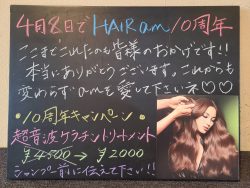 4月8日でHAIR am 10周年
ここまでこれたのも皆様のおかげです!!
本当にありがとうございます。これからも
変わらず amを愛して下さいネ♡♡
・10周年キャンペーン
超音波ケラチントリートメント
¥4500→¥2000
シャンプー前に伝えて下さい!!